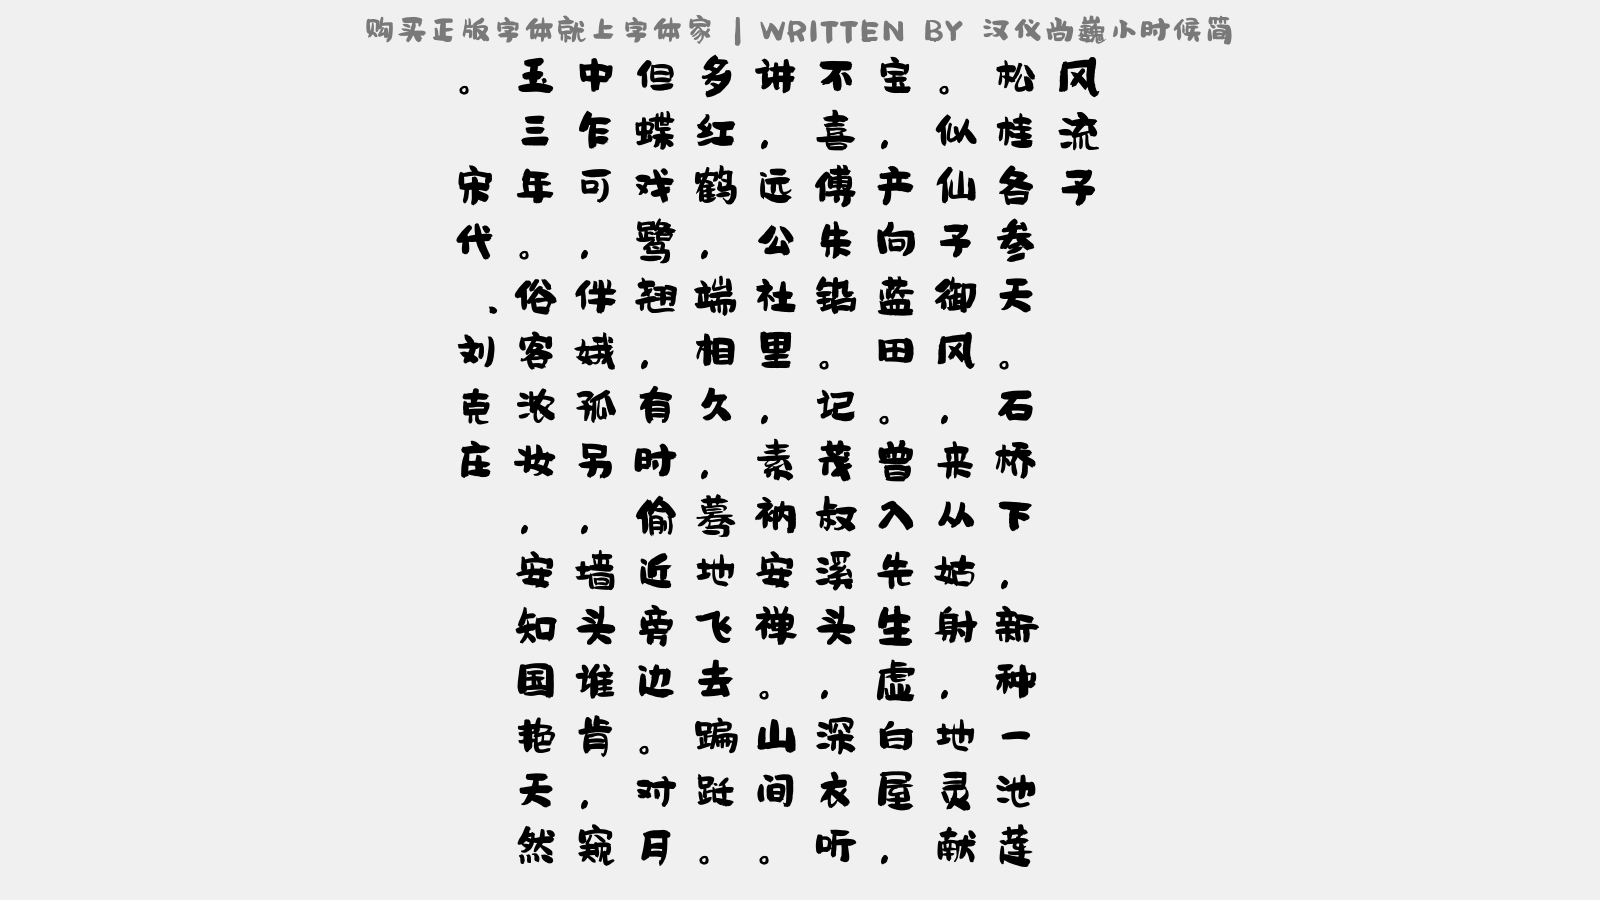 购买正版字体就上字体家 | WRITTEN BY 汉仪尚巍小时候简
风流子
松桂各参天。石桥下，新种一池莲
。似仙子御风，来从姑射，地灵献
宝，产向蓝田。曾入先生虚白屋，
不喜傅朱铅。记茂叔溪头，深衣听
讲，远公社里，素衲安禅。山间。
多红鹤，端相久，蓦地飞去蹁跹。
但蝶戏鹭翘，有时偷近旁边。对月
中乍可，伴娥孤另，墙头谁肯，窥
玉三年。俗客浓妆，安知国艳天然
。 宋代、刘克庄